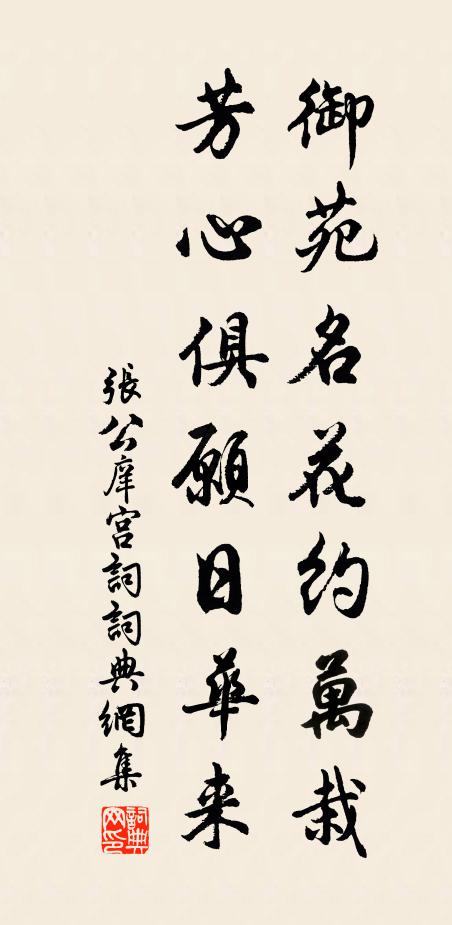 御苑名花約萬栽
芳心俱願日華来
張公庠宫詞詞典網集
詞典網印